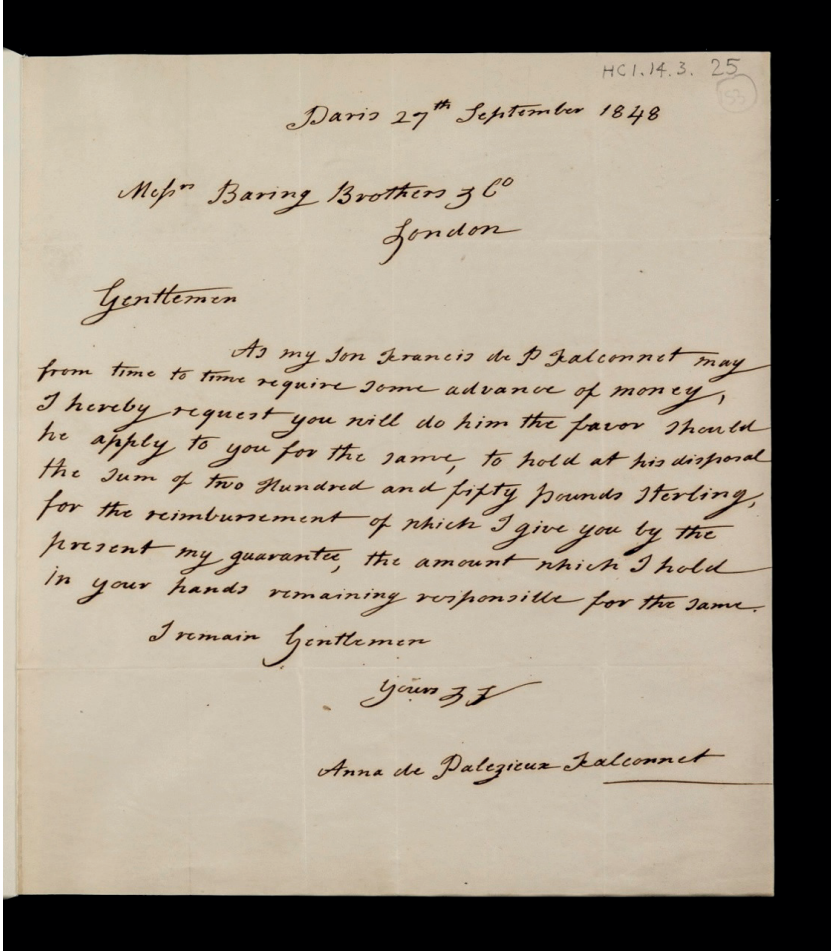 HC1.14.3. 25
53
Paris 27th September 1848
Messrs Baring Brothers & Co
London
Gentlemen
As my Son Francis de P Falconnet may
from time to time require some advance of money,
I hereby request you will do him the favor should
he apply to you for the same, to hold at his disposal
the Sum of two Hundred and fifty pounds Sterling,
for the reimbursement of which I give you by the
present my guarantee, the amount which I hold
in your hands remaining responsible for the same.
I remain Gentlemen
Yours &
Anna de Palezieux Falconnet